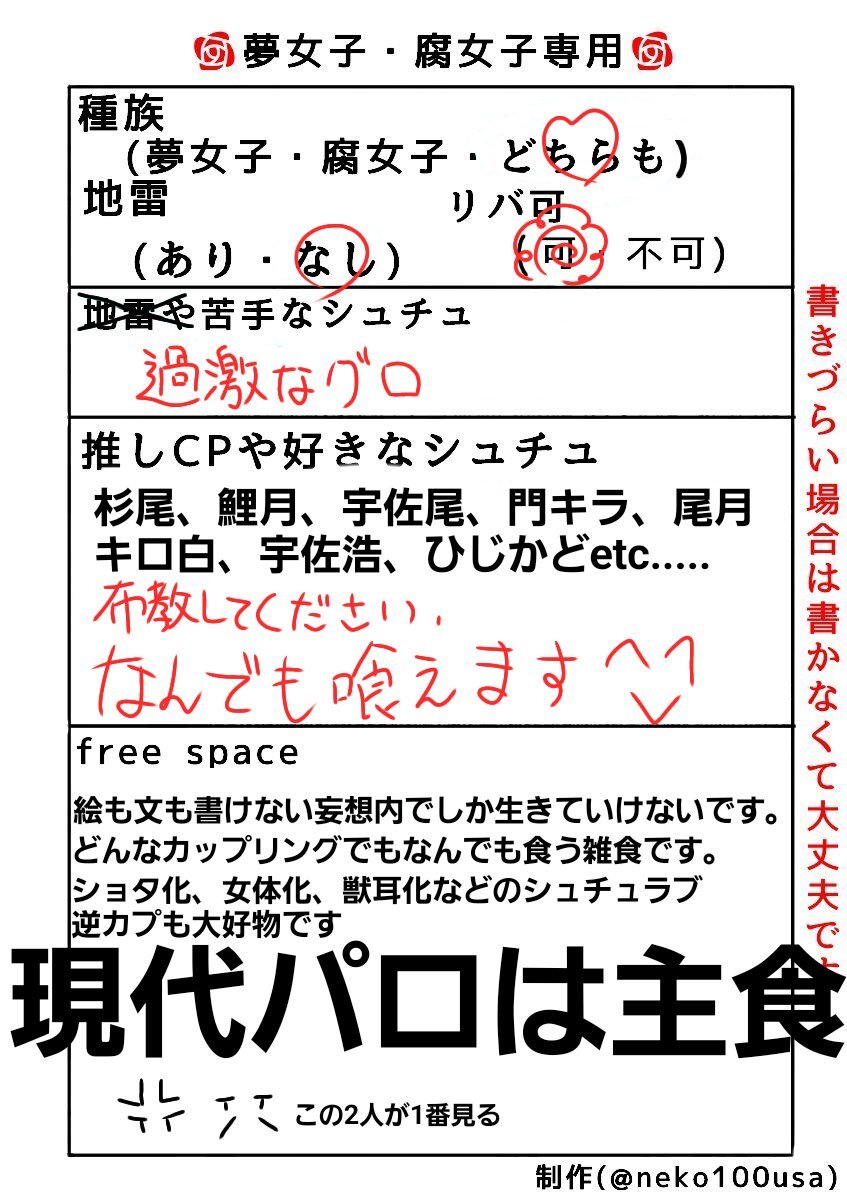 夢女子・腐女子専用
種族
(夢女子・腐女子・どちらも)
地雷
リバ可
(あり・なし)
(可・不可)
地雷や苦手なシュチュ
過激なグロ
推しCPや好きなシュチュ
杉尾、鯉月、宇佐尾、門キラ、尾月
キロ白、宇佐浩、ひじかどetc.....
布教してください、
なんでも喰えます
free space
絵も文も書けない妄想内でしか生きていけないです。
どんなカップリングでもなんでも食う雑食です。
ショタ化、女体化、獣耳化などのシュチュラブ
逆カプも大好物です
現代パロは主食
この2人が1番見る
書きづらい場合は書かなくて大丈夫です
制作(@neko100usa)